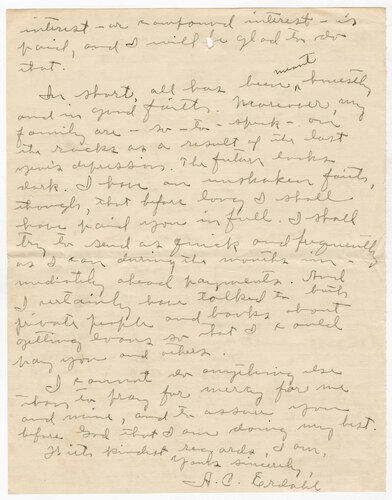 interest - or compound interest - is
paid, and I will be glad to do
that.
In short, all has been meant honestly
and in good faith. Moreover, my
family are - so - to - speak - on
the rocks as a result of the last
year's depression. The future looks
dark. I have an unshaken faith,
though, that before long I shall
have paid you in full. I shall
try to send as quick and frequently
as I can during the months im-
mediately ahead payments. And
I certainly have talked to both
private people and banks about
getting loans so that I could
pay you and others.
I cannot do anything else
than to pray for mercy for me
and mine, and to assure you
before God that I am doing my best.
With kindest regards, I am,
Yours sincerely,
A. C. Erdahl